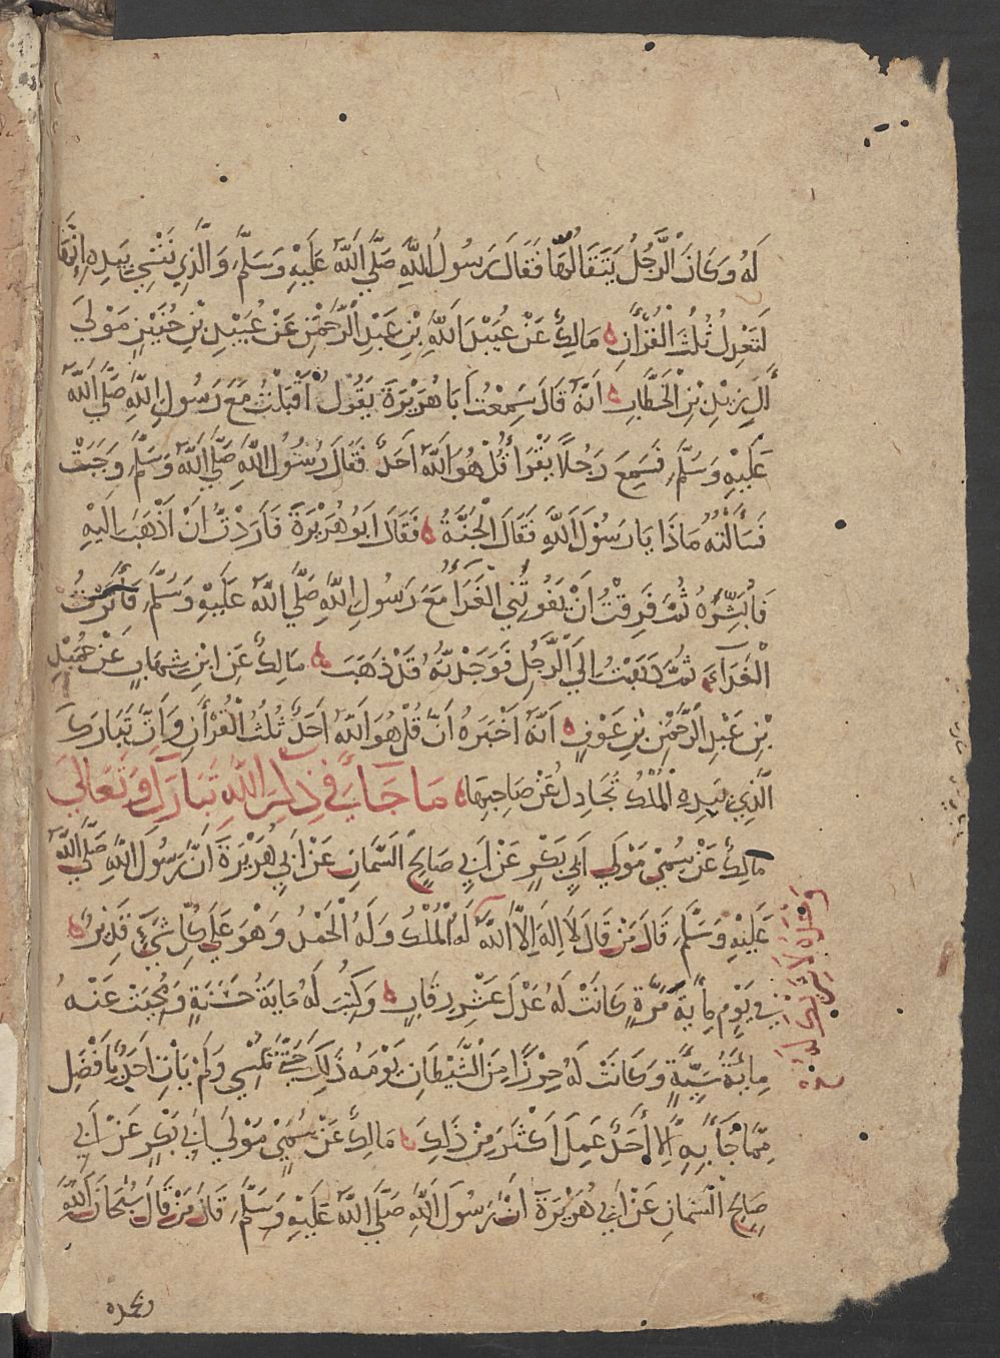 لَهُ وَكَانَ الرَّجُلُ يَتَقَالُهَا فَقَالَ رَسُولُ اللَّهِ صَلَّى اللَّهُ عَلَيْهِ وَسَلَّمَ وَالَّذِي نَفْسِي بِيَدِهِ إِنَّهَا
لَتَعْدِلُ ثُلُثَ الْقُرْأَنِ مَالِكٌ عَنْ عُبَيْدِ اللَّهِ بْنِ عَبْدِ الرَّحْمَنِ عَنْ عُبَيْدِ بْنِ حُنَيْنٍ مَوْلَى
أَلِ زَيْدِ بْنِ الْخَطَّابِ أَنَّهُ قَالَ سَمِعْتُ أَبَا هُرَيْرَةَ يَقُولُ أَقْبَلْتُ مَعَ رَسُولِ اللَّهِ صَلَّى اللَّهُ
عَلَيْهِ وَسَلَّمَ فَسَمِعَ رَجُلًا يَقْرَأُ قُلْ هُوَ اللَّهُ أَحَدٌ فَقَالَ رَسُولُ اللَّهِ صَلَّى اللَّهُ وَسَلَّمَ وَجَبَتْ
فَسَأَلْتُهُ مَاذَا يَا رَسُولَ اللَّهِ فَقَالَ الْجَنَّةُ فَقَالَ أَبُو هُرَيْرَةَ فَأَرَدْتُ أَنْ أَذْهَبَ إِلَيْهِ
فَأُبَشِّرُهُ ثُمَّ فَرِقْتُ أَنْ يَفُوتَنِي الْغَدَأُ مَعَ رَسُولِ اللَّهِ صَلَّى اللَّهُ عَلَيْهِ وَسَلَّمَ فَأَثَرْتُ
الْغَدَآءَ ثُمَّ ذَهَبْتُ إِلَى الرَّجُلِ فَوَجَدْتُهُ قَدْ ذَهَبَ مَالِكٌ عَنِ ابْنِ شِهَابٍ عَنْ حُمَيْدِ
بْنِ عَبْدِ الرَّحْمَنِ بْنِ عَوْفٍ أَنَّهُ أَخْبَرَهُ أَنَّ قُلْ هُوَ اللَّهُ أَحَدٌ ثُلُثُ الْقُرْأَنِ وَأَنَّ تَبَارَكَ
الَّذِي بِيَدِهِ الْمُلْكُ تُجَادِلُ عَنْ صَاحِبِهَا مَا جَاءَ فِي ذِكْرِ اللَّهِ تَبَارَكَ وَتَعَالَى
مَالِكٌ عَنْ سُمَيٍّ مَوْلَى أَبِي بَكْرٍ عَنْ أَبِي صَالِحٍ السَّمَّانِ عَنْ أَبِي هُرَيْرَةَ أَنَّ رَسُولَ اللَّهِ صَلَّى اللَّهُ
عَلَيْهِ وَسَلَّمَ قَالَ مَنْ قَالَ لَا إِلَهَ إِلَّا اللَّهُ لَهُ الْمُلْكُ وَلَهُ الْحَمْدُ وَهْوَ عَلَى كُلِّ شَيْءٍ قَدِيرٌ
وَحْدَهُ لَا شَرِيكَ لَهُ
فِي يَوْمٍ مِأَيَةَ مَرَّةٍ كَانَتْ لَهُ عَدْلَ عَشْرِ رِقَابٍ وَكُتِبَ لَهُ مَايَةُ حَسَنَةٍ وَمُحِيَتْ عَنْهُ
مِايَةُ سَيِّئَةٍ وَكَانَتْ لَهُ حِرْزًا مِنَ الشَّيْطَانِ يَوْمَهُ ذَلِكَ حَتَّى يُمْسِي وَلَمْ يَأْتِ أَحَدٌ بِأَفْضَلَ
مِمَّا جَأَ بِهِ إِلَّا أَحَدٌ عَمِلَ أَكْثَرَ مِنْ ذَلِكَ مَالِكٌ عَنْ سُمَيٍّ مَوْلَى أَبِي بَكْرٍ عَنْ أَبِي
صَالِحٍ السَّمَّانِ عَنْ أَبِي هُرَيْرَةَ أَنَّ رَسُولَ اللَّهِ صَلَّى اللَّهُ عَلَيْهِ وَسَلَّمَ قَالَ مَنْ قَالَ سُبْحَانَ اللَّهِ
وبحمده